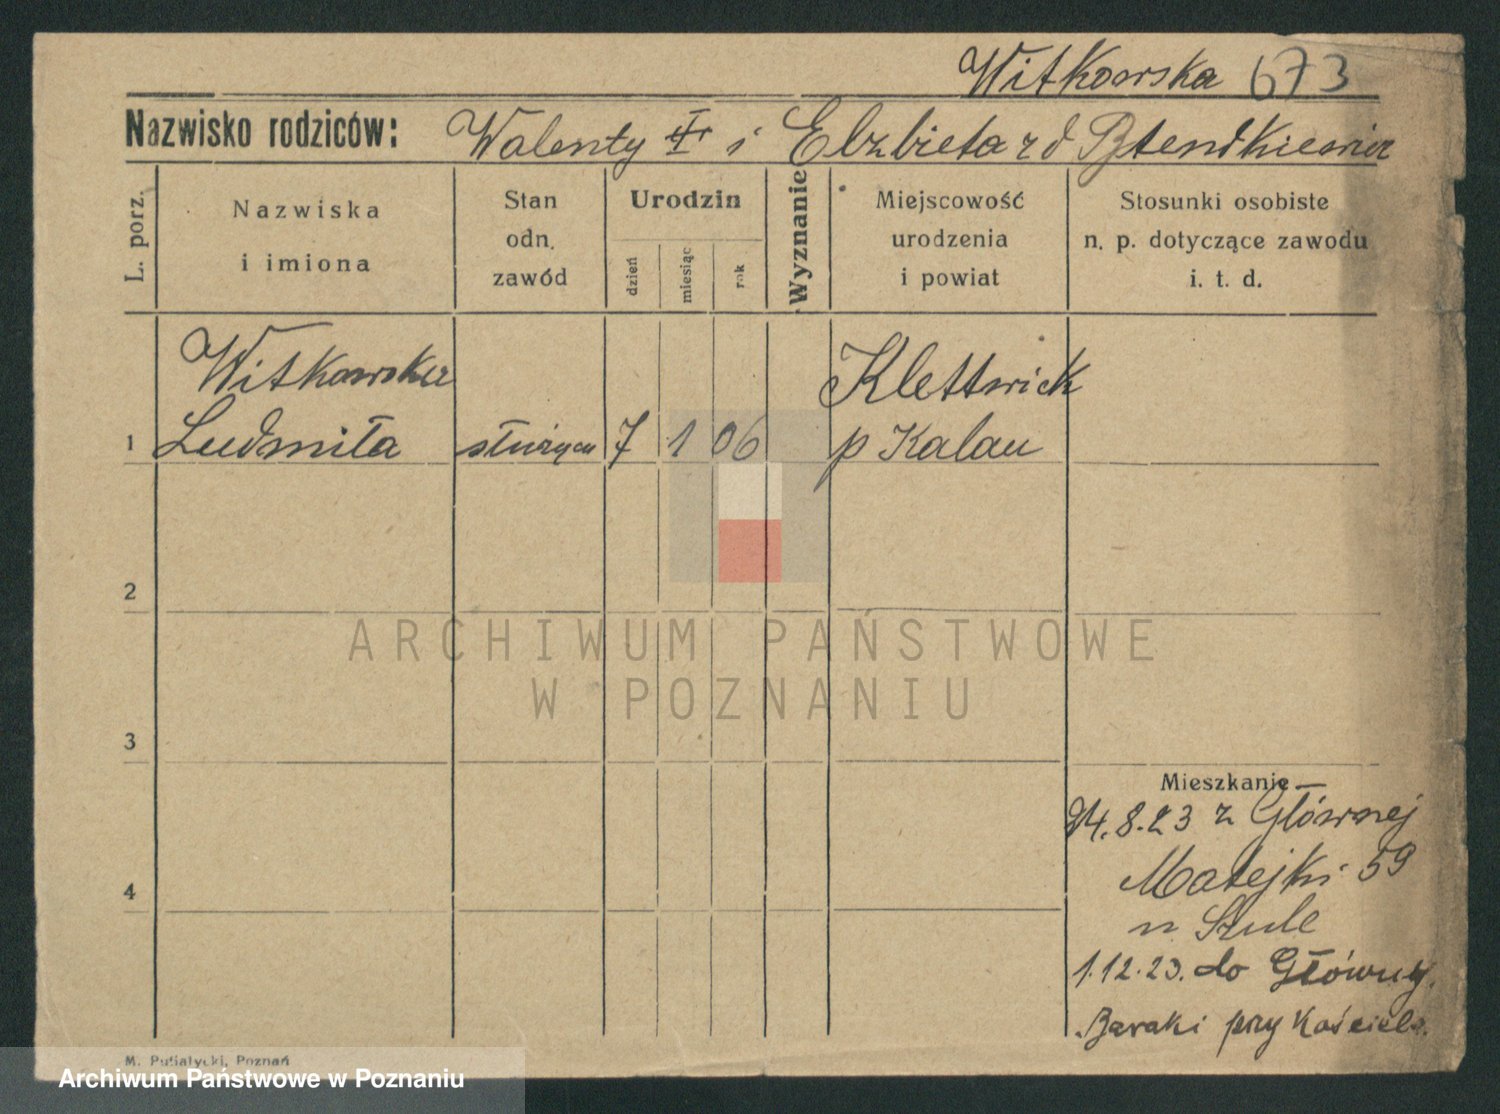 Witkowska 673
Nazwisko rodziców: Walenty i Elzbieta z d
L. porz.
Nazwiska
i imiona
Stan
odn.
zawód
Urodzin
dzień
miesiąc
rok
Wyznanie
Miejscowość
urodzenia
i powiat
Stosunki osobiste
n. p. dotyczące zawodu
i. t. d.
Witkowska
1 Ludmiła służąca 7 1 06
Klettwick
p Kalau
2
ARCHIWUM PAŃSTWOWE
W POZNANIU
3
Mieszkanie
24.8.23 z Głównej
Matejki 59
u Szulc
1.12.23. do Głównej.
Baraki przy Kościele.
4
M. Pusiatycki, Poznań
Archiwum Państwowe w Poznaniu